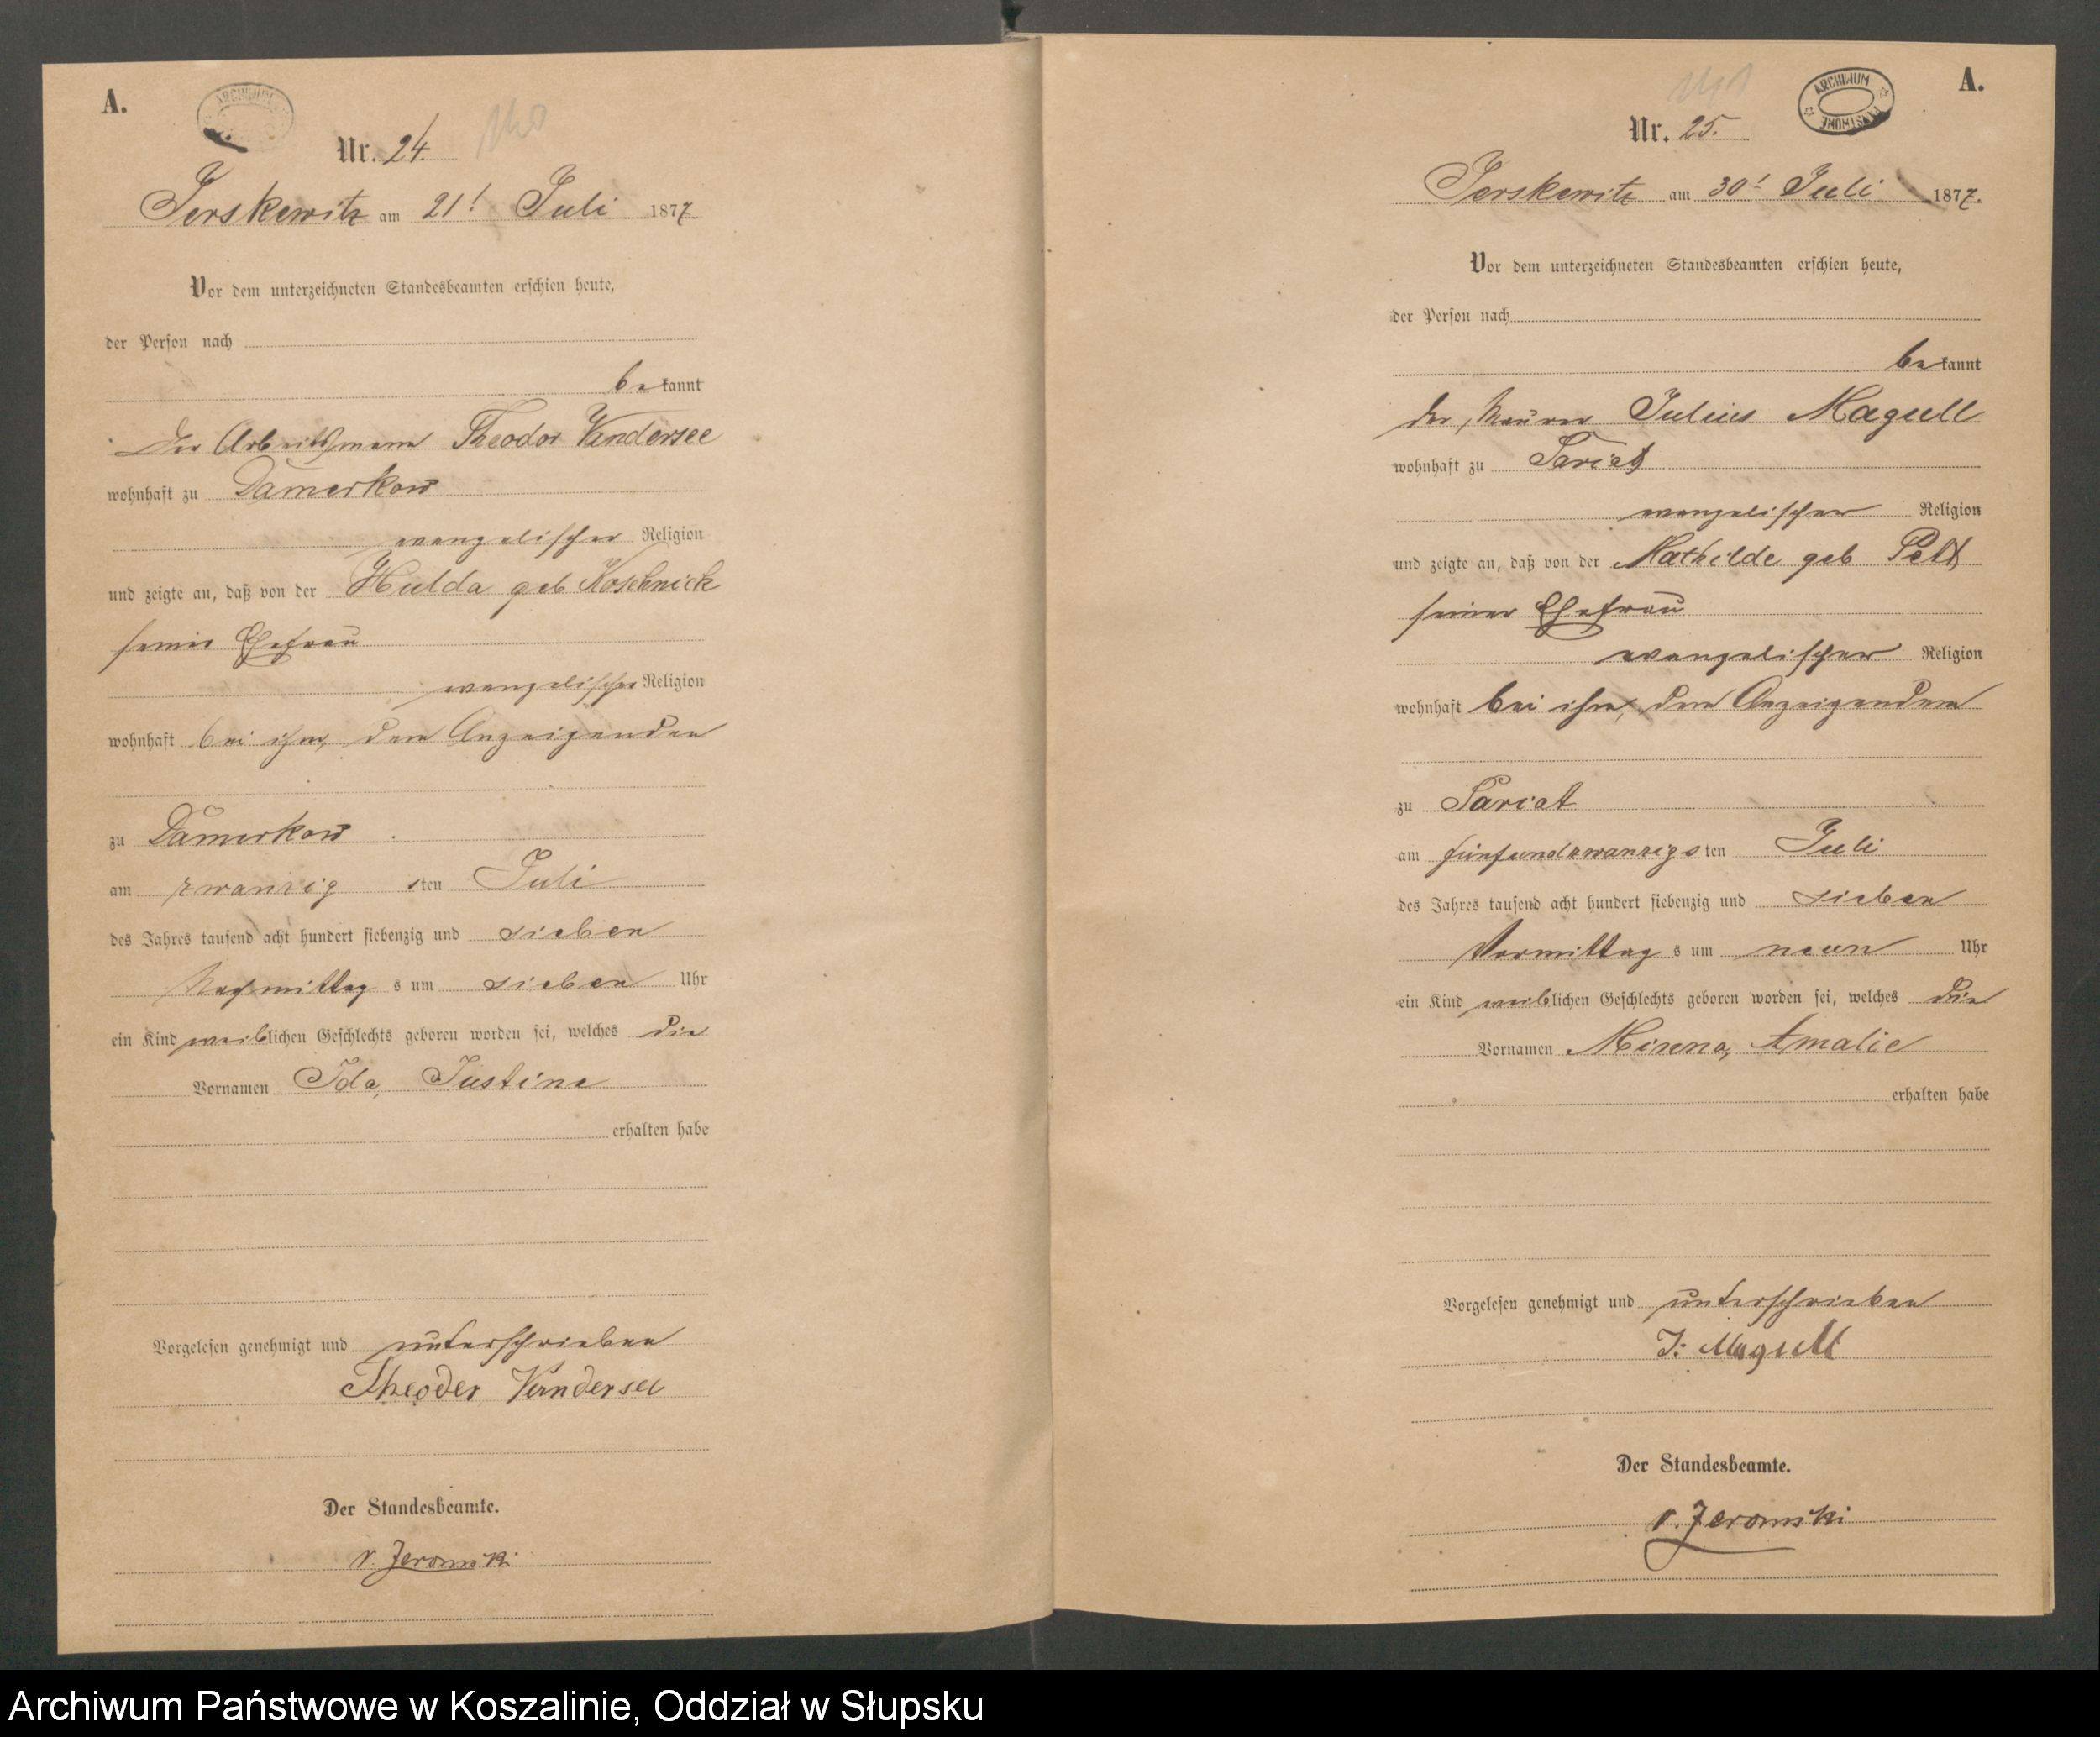 A.
ARCHIWUM
Nr. 24.
140
Jerskewitz am 21t Juli 1877
Vor dem unterzeichneten Standesbeamten erschien heute,
der Person nach
bekannt
Der Arbeitsmann Theodor Vandersee
wohnhaft zu Damerkow
evangelischer Religion
und zeigte an, daß von der Hulda geb Koschnick
seiner Ehefrau
evangelischer Religion
wohnhaft bei ihm, dem Anzeigenden
zu Damerkow
am zwanzigsten Juli
des Jahres tausend acht hundert siebenzig und sieben
Nachmittags um sieben Uhr
ein Kind weiblichen Geschlechts geboren worden sei, welches die
Vornamen Ida, Justine
erhalten habe
Vorgelesen genehmigt und unterschrieben
Theoder Vandersee
Der Standesbeamte.
v. Jeromski
A.
ARCHIWUM PAŃSTWOWE
141
Nr. 25.
Jerskewitz am 30t Juli 1877.
Vor dem unterzeichneten Standesbeamten erschien heute,
der Person nach
bekannt
der Maurer Julius Magull
wohnhaft zu Pariat
evangelischer Religion
und zeigte an, daß von der Mathilde geb
seiner Ehefrau
evangelischer Religion
wohnhaft bei ihm, dem Anzeigenden
zu Pariat
am fünfundzwanzigsten Juli
des Jahres tausend acht hundert siebenzig und sieben
Vormittags um neun Uhr
ein Kind weiblichen Geschlechts geboren worden sei, welches die
Vornamen Minna, Amalie
erhalten habe
Vorgelesen genehmigt und unterschrieben
J: Magull
Der Standesbeamte.
v. Jeromski
Archiwum Państwowe w Koszalinie, Oddział w Słupsku